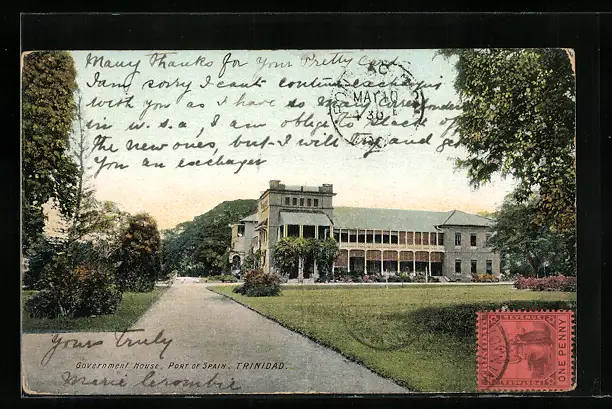 Many Thanks for Your Pretty Card
I am sorry I can't continue exchanging
with you as I have so many
in U.S.A, I am oblige to slack off
the new ones, But I will try and get
you an exchager
MAY 10
Yours truly
Government House, PORT OF SPAIN, TRINIDAD.
Marie Abercrombie
ONE PENNY